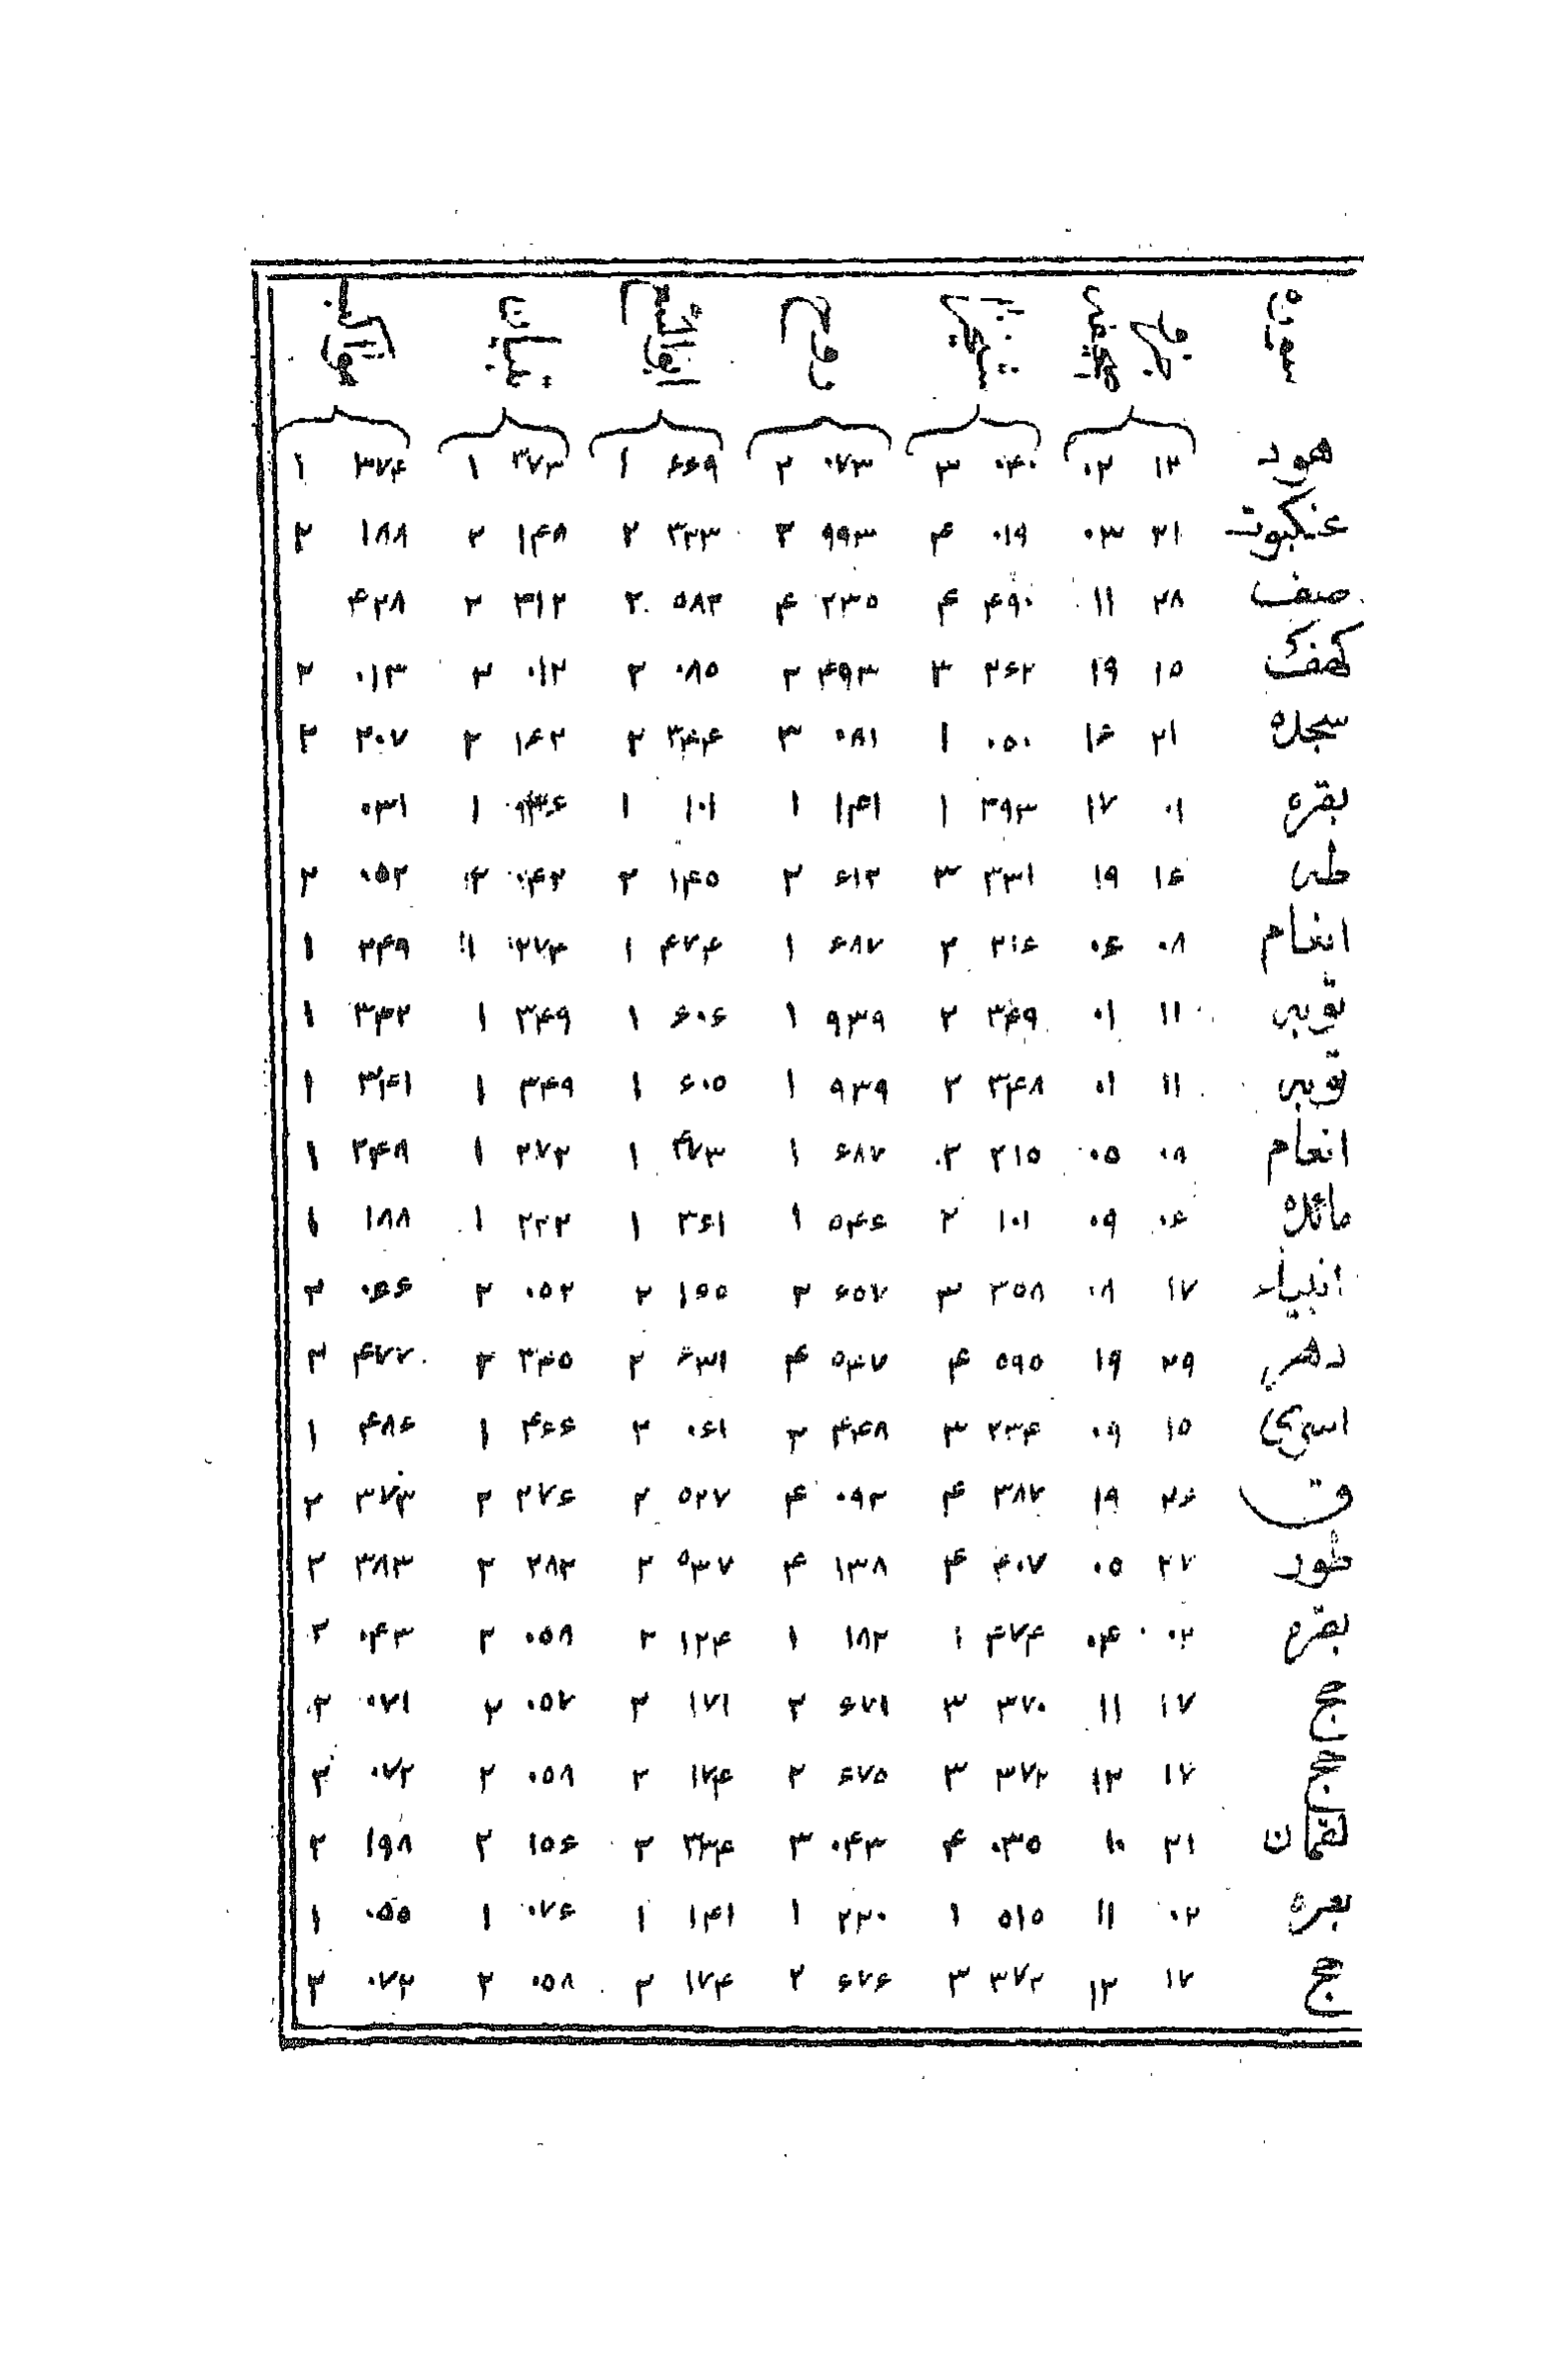 سوره
هود ۱۲ ۰۲ ۰۴۰ ۳ ۰۷۳ ۲ ۶۶۹ ۱ ۳۷۳ ۱ ۳۷۴ ۱
عنكبوت ۲۱ ۰۳ ۰۱۹ ۴ ۹۹۳ ۲ ۳۲۳ ۲ ۱۴۸ ۲ ۱۸۸ ۲
صف ۲۸ ۱۱ ۴۹۰ ۴ ۲۳۵ ۴ ۵۸۲ ۲ ۳۱۲ ۲ ۴۲۸
كهف ۱۵ ۱۹ ۲۶۲ ۳ ۴۹۳ ۲ ۰۸۵ ۲ ۰۱۲ ۲ ۰۱۳ ۲
سجده ۲۱ ۱۶ ۰۵۰ ۱ ۰۸۱ ۳ ۳۴۴ ۲ ۱۶۲ ۲ ۲۰۷ ۲
بقره ۰۱ ۱۷ ۳۹۳ ۱ ۱۴۱ ۱ ۱۰۱ ۱ ۱ ۰۳۱
طه ۱۶ ۱۹ ۳۳۱ ۳ ۶۱۲ ۲ ۱۴۵ ۲ ۰۴۲ ۲ ۰۵۲ ۲
انعام ۰۸ ۰۶ ۲۱۶ ۲ ۶۸۷ ۱ ۴۷۴ ۱ ۲۷۳ ۱ ۲۴۹ ۱
توبه ۱۱ ۰۱ ۳۴۹ ۲ ۹۳۹ ۱ ۶۰۶ ۱ ۳۴۹ ۱ ۳۴۲ ۱
توبه ۱۱ ۰۱ ۳۴۸ ۲ ۹۳۹ ۱ ۶۰۵ ۱ ۳۴۹ ۱ ۳۴۱ ۱
انعام ۰۸ ۰۵ ۲۱۵ ۲ ۶۸۷ ۱ ۴۷۳ ۱ ۲۷۳ ۱ ۲۴۸ ۱
مائده ۰۶ ۰۹ ۱۰۱ ۲ ۵۴۶ ۱ ۳۶۱ ۱ ۲۲۲ ۱ ۱۸۸ ۱
انبياء ۱۷ ۰۸ ۳۵۸ ۳ ۶۵۷ ۲ ۱۶۵ ۲ ۰۵۲ ۲ ۰۶۶ ۲
دهر ۲۹ ۱۹ ۵۹۵ ۴ ۵۴۷ ۴ ۶۳۱ ۲ ۳۴۵ ۲ ۴۷۷ ۲
اسرى ۱۵ ۰۹ ۲۳۴ ۳ ۴۴۸ ۲ ۰۶۱ ۲ ۴۶۶ ۱ ۴۸۶ ۱
ق ۲۶ ۱۹ ۳۸۷ ۴ ۰۹۲ ۴ ۵۲۷ ۲ ۲۷۶ ۲ ۳۷۳ ۲
طور ۲۷ ۰۵ ۴۰۷ ۴ ۱۳۸ ۴ ۵۳۷ ۲ ۲۸۲ ۲ ۳۸۳ ۲
بقره ۰۲ ۰۴ ۴۷۴ ۱ ۱۸۲ ۱ ۱۲۴ ۲ ۰۵۸ ۲ ۰۴۳ ۲
حج ۱۷ ۱۱ ۳۷۰ ۳ ۶۷۱ ۲ ۱۷۱ ۲ ۰۵۷ ۲ ۰۷۱ ۲
حج ۱۷ ۱۲ ۳۷۲ ۳ ۶۷۵ ۲ ۱۷۴ ۲ ۰۵۸ ۲ ۰۷۲ ۲
لقمان ۲۱ ۱۰ ۰۳۵ ۴ ۰۴۳ ۳ ۳۳۴ ۲ ۱۵۶ ۲ ۱۹۸ ۲
بقره ۰۲ ۱۱ ۵۱۵ ۱ ۲۲۰ ۱ ۱۴۱ ۱ ۰۷۶ ۱ ۰۵۵ ۱
حج ۱۷ ۱۲ ۳۷۲ ۳ ۶۷۶ ۲ ۱۷۴ ۲ ۰۵۸ ۲ ۰۷۲ ۲